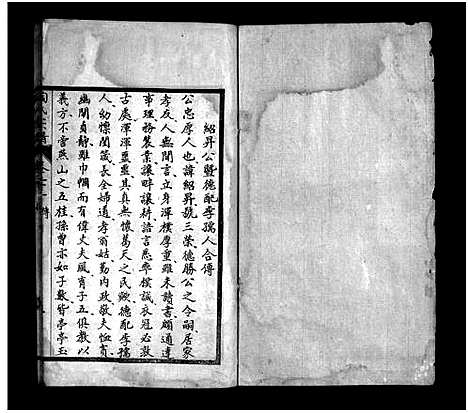 紹昇公暨德配李孺人合傳
公忠厚人也諱紹昇號三榮德勝公之令嗣居家
孝友人無閒言立身渾樸厚重雖未讀書頗通達
事理務農業讓畔讓耕語言悉率樸誠衣冠必敦
古處渾渾噩噩其真無懷葛天之民歟德配李孺
人幼愫閨箴長全婦道孝翁姑勤內政敬夫恤貧
幽閒貞靜雖巾幗而有偉丈夫風育子五俱教以
義方不啻燕山之五桂孫曾亦如子數皆亭亭玉
氏宗譜 傳